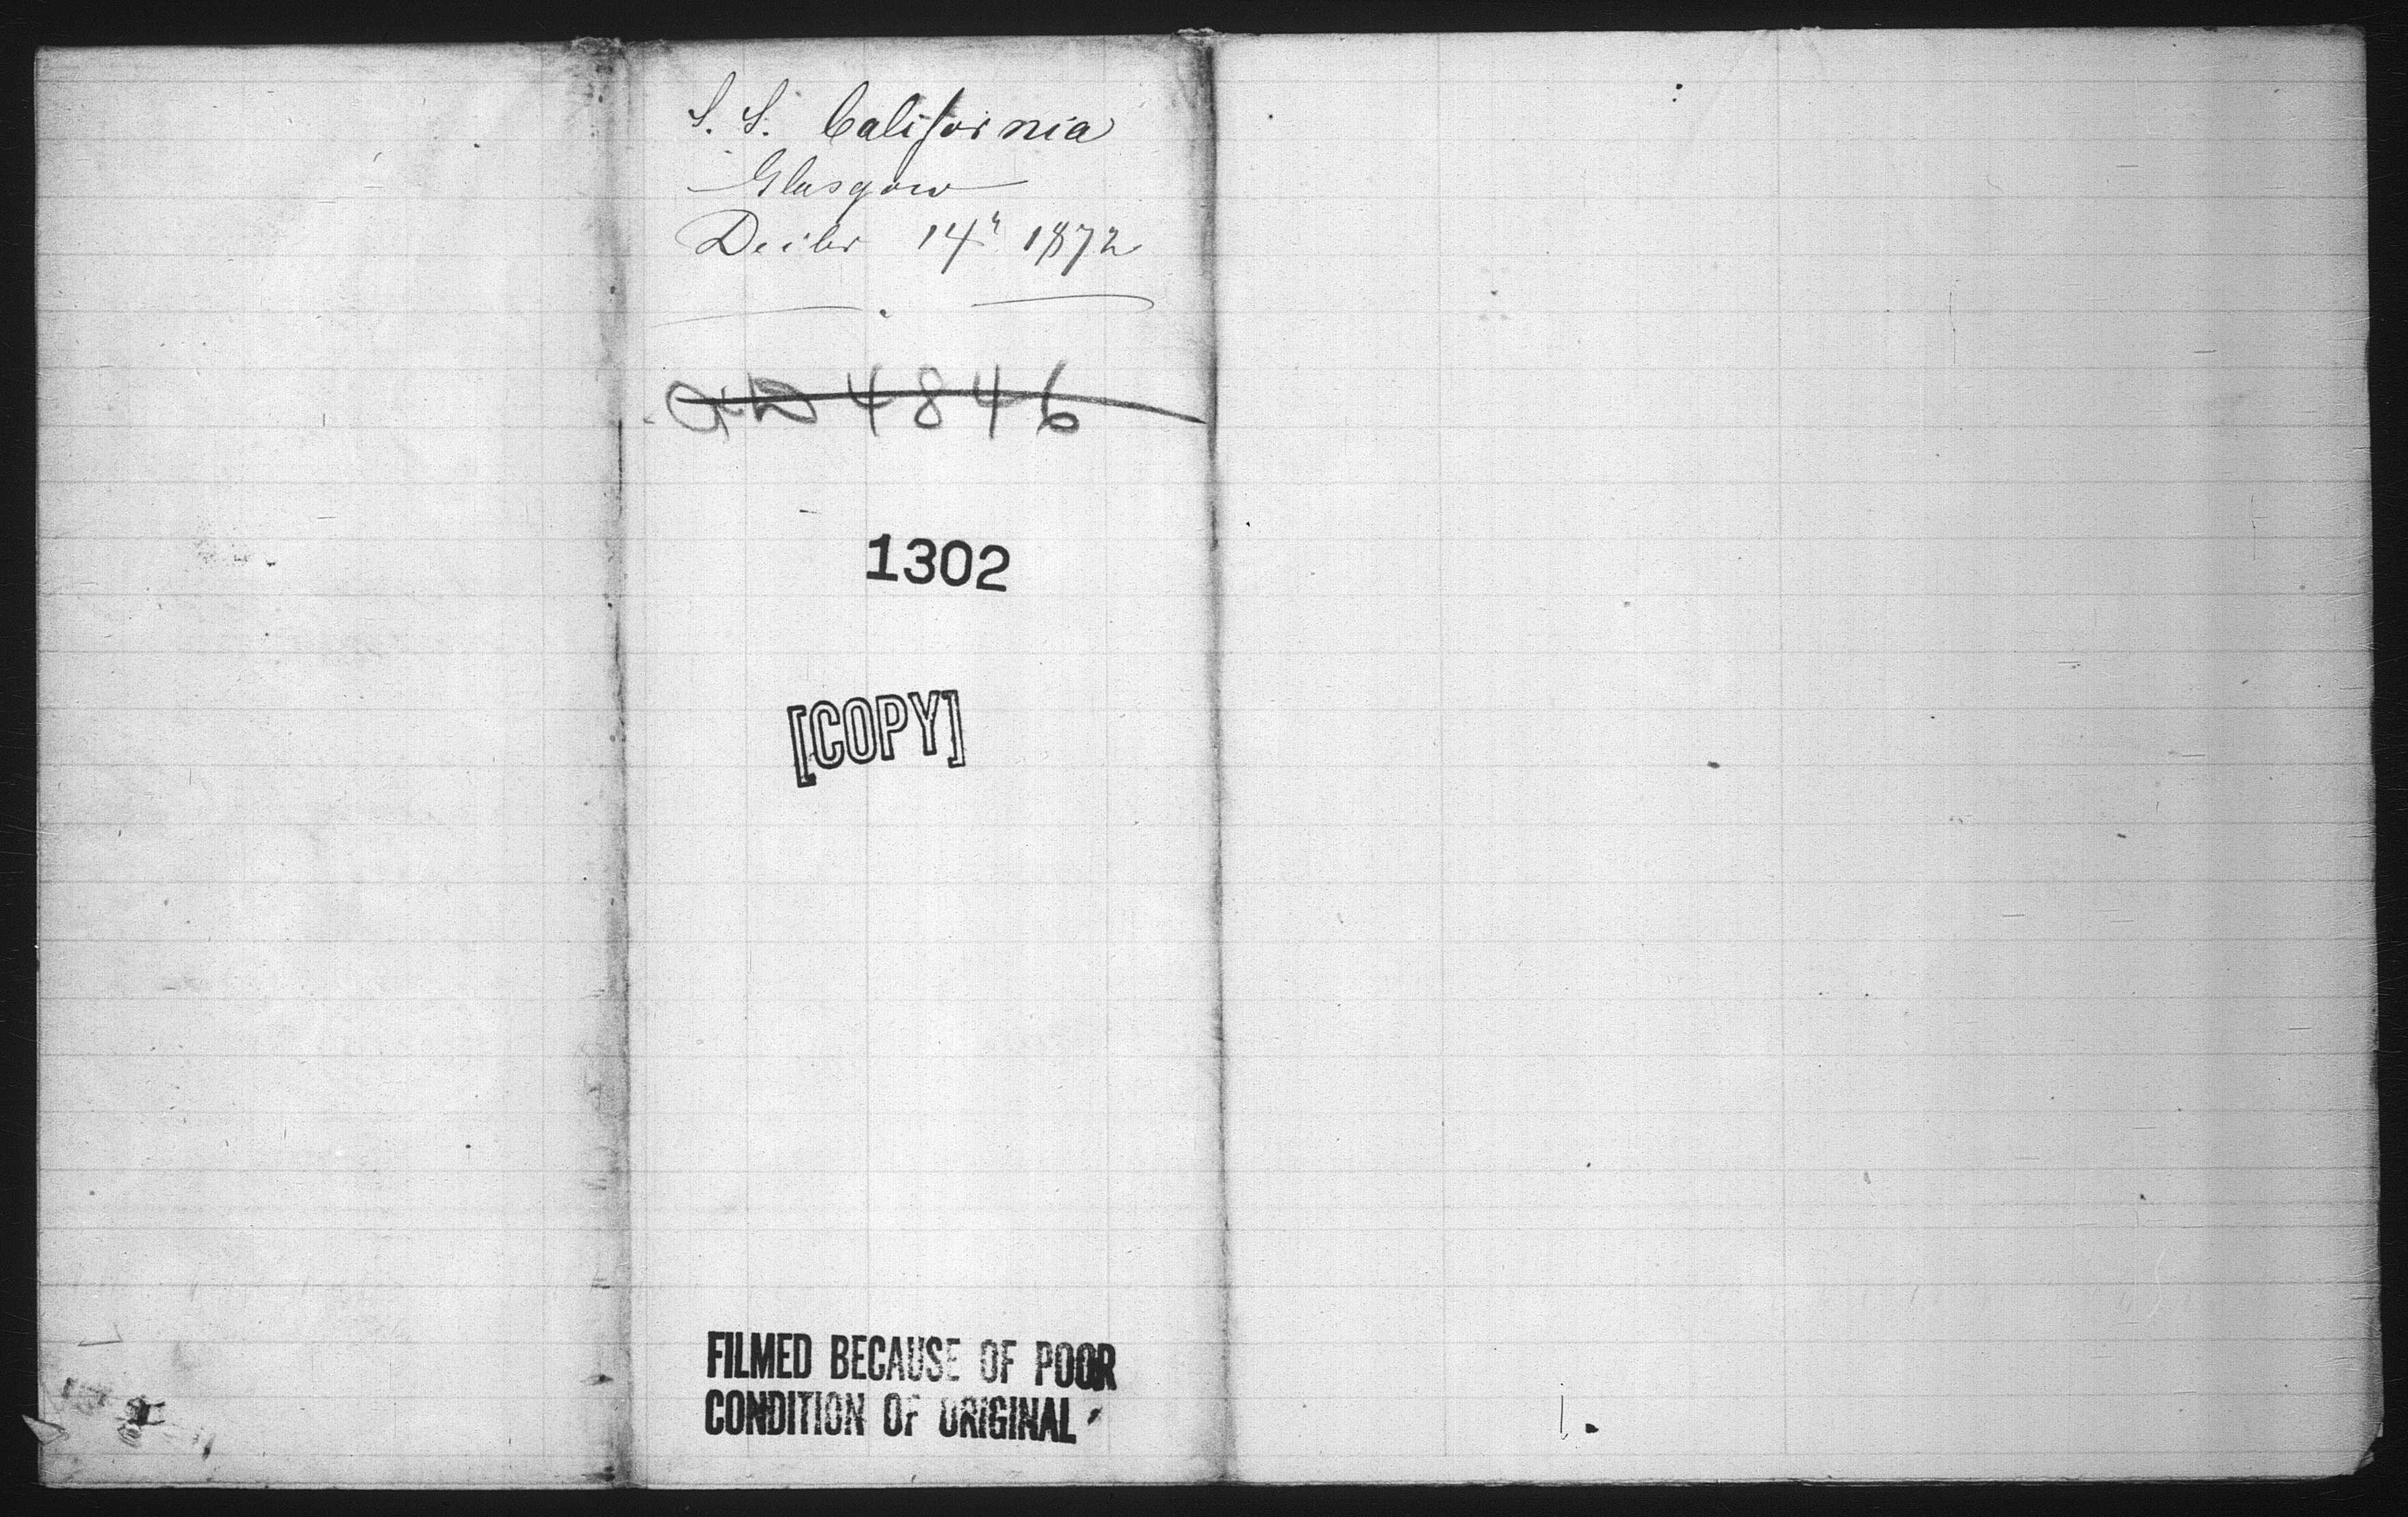 S. S. California
Glasgow
Decbr 14" 1872
4846
1302
[COPY]
FILMED BECAUSE OF POOR
CONDITION OF ORIGINAL